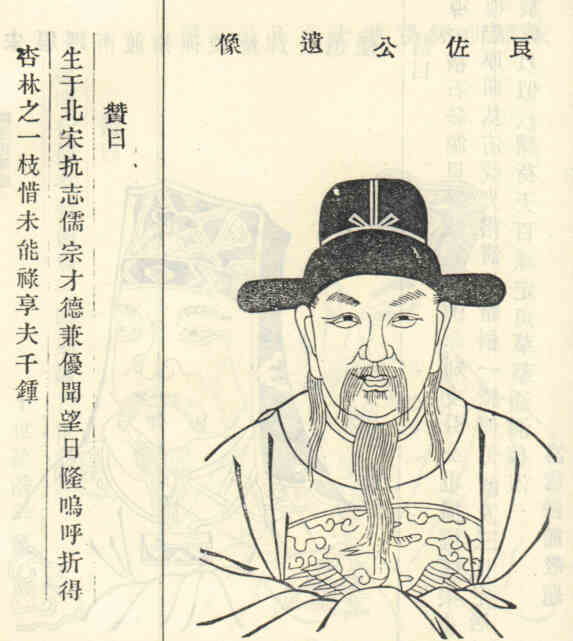 良佐公遺像
贊曰
生于北宋抗志儒宗才德兼優聞望日隆嗚呼折得
杏林之一枝惜未能祿享夫千鍾